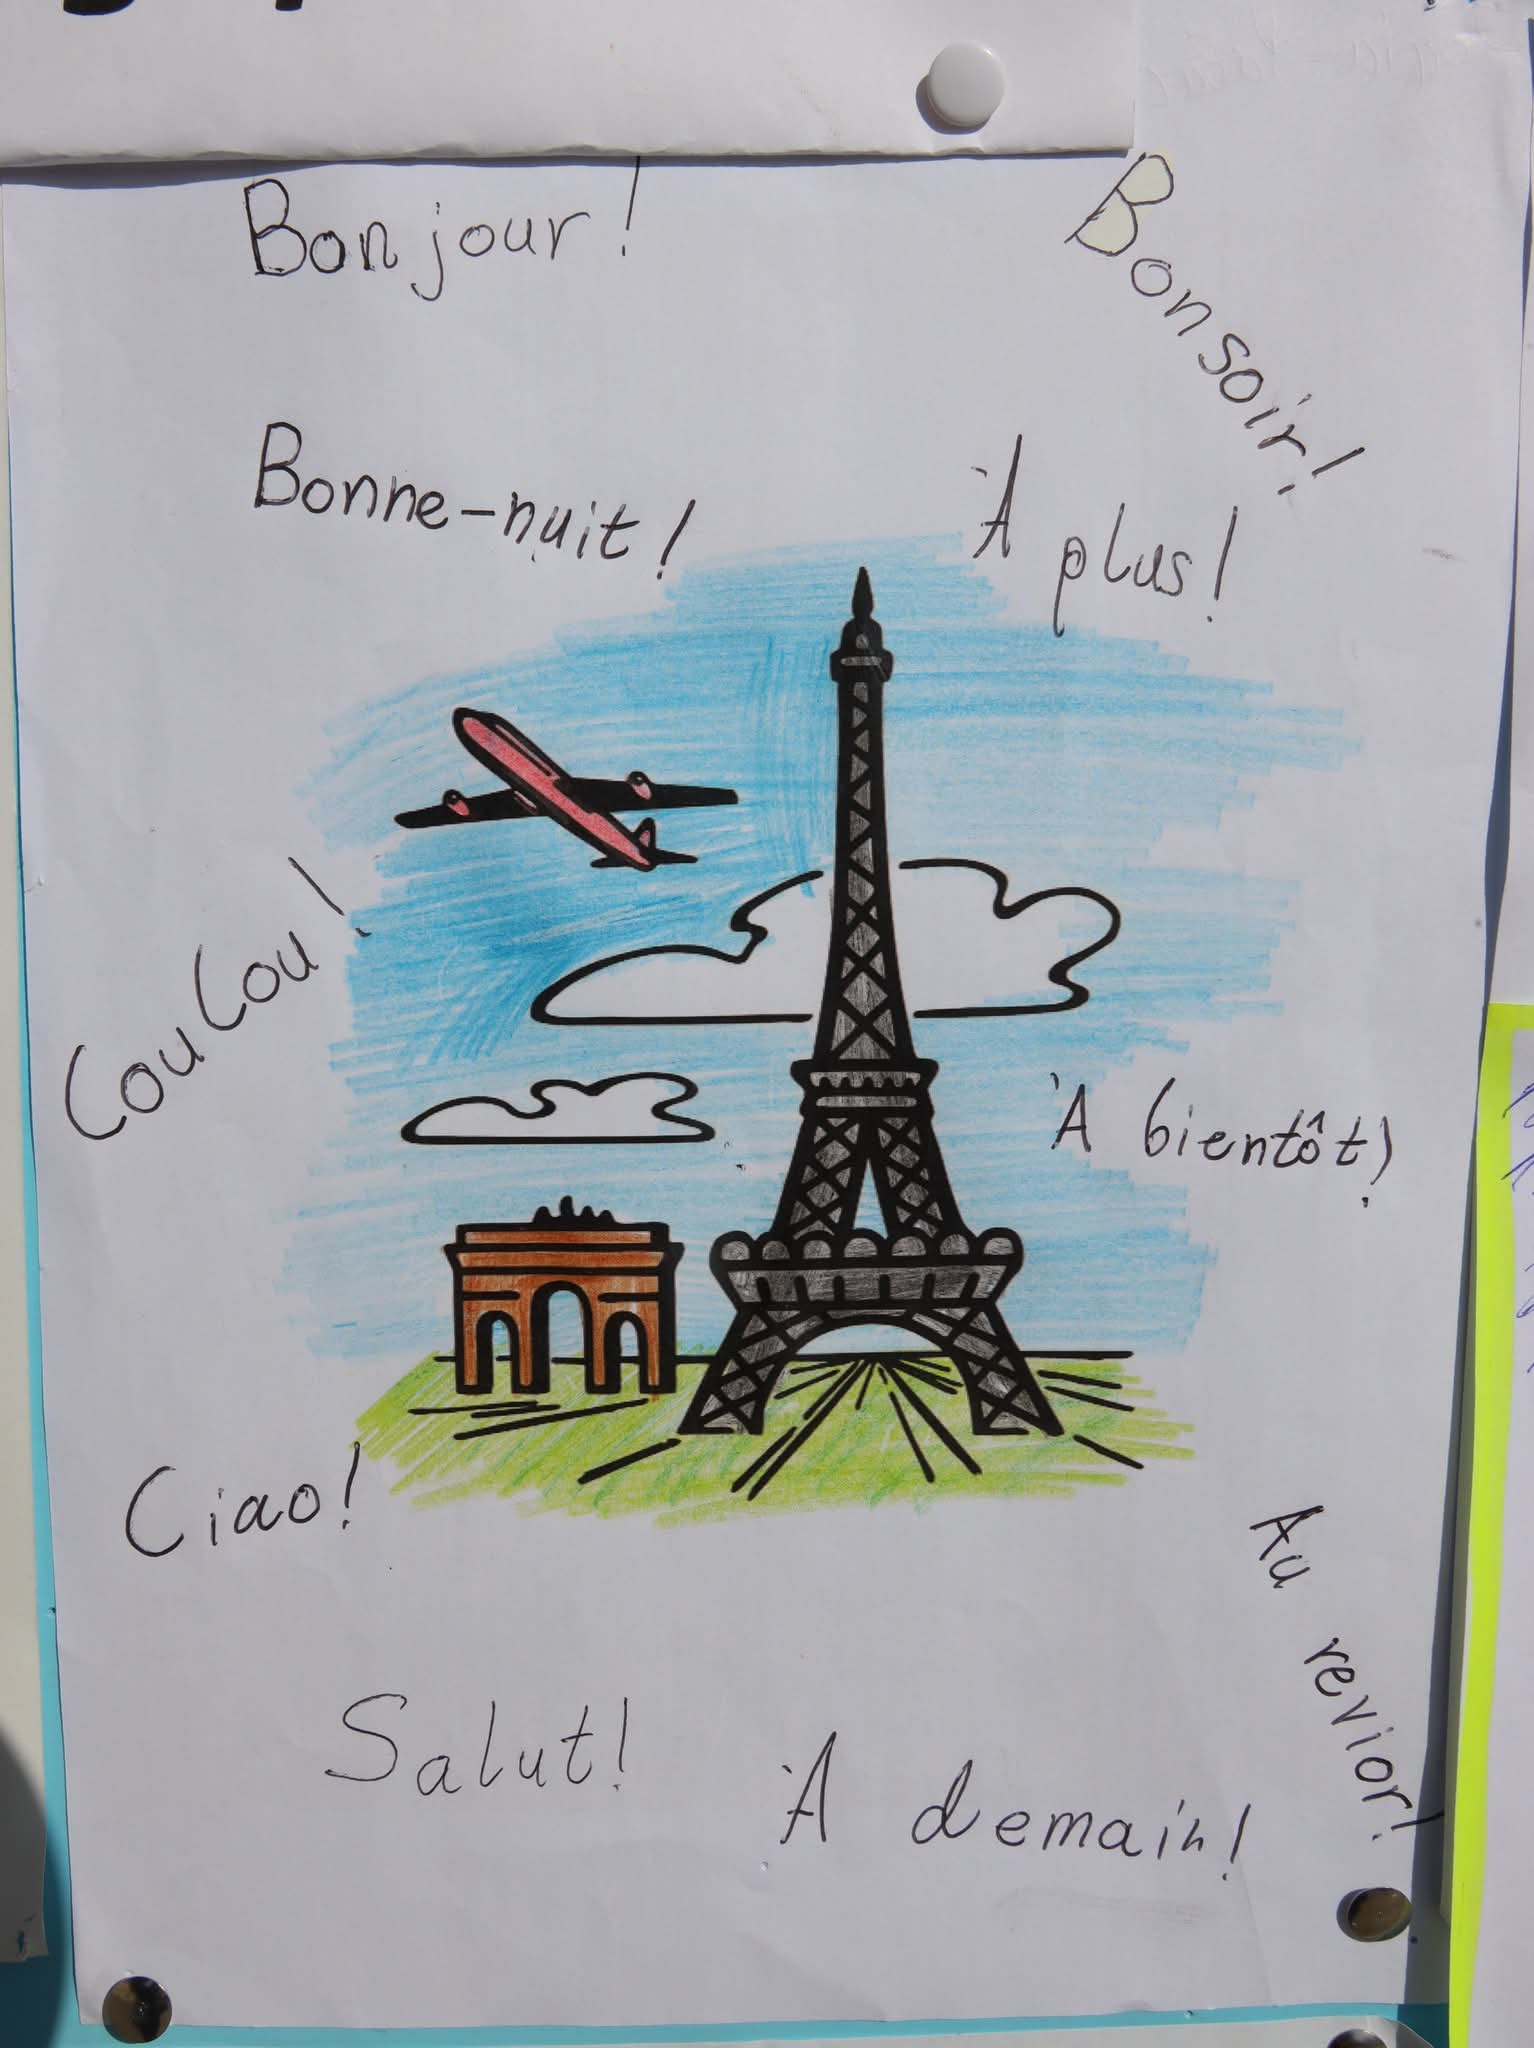 Bonjour!
Bonsoir!
Bonne-nuit!
À plus!
Coucou!
À bientôt!
Ciao!
Au revior!
Salut!
À demain!